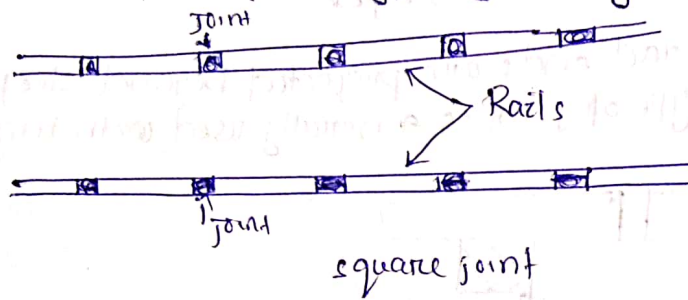 Joint
Rails
joint
square joint